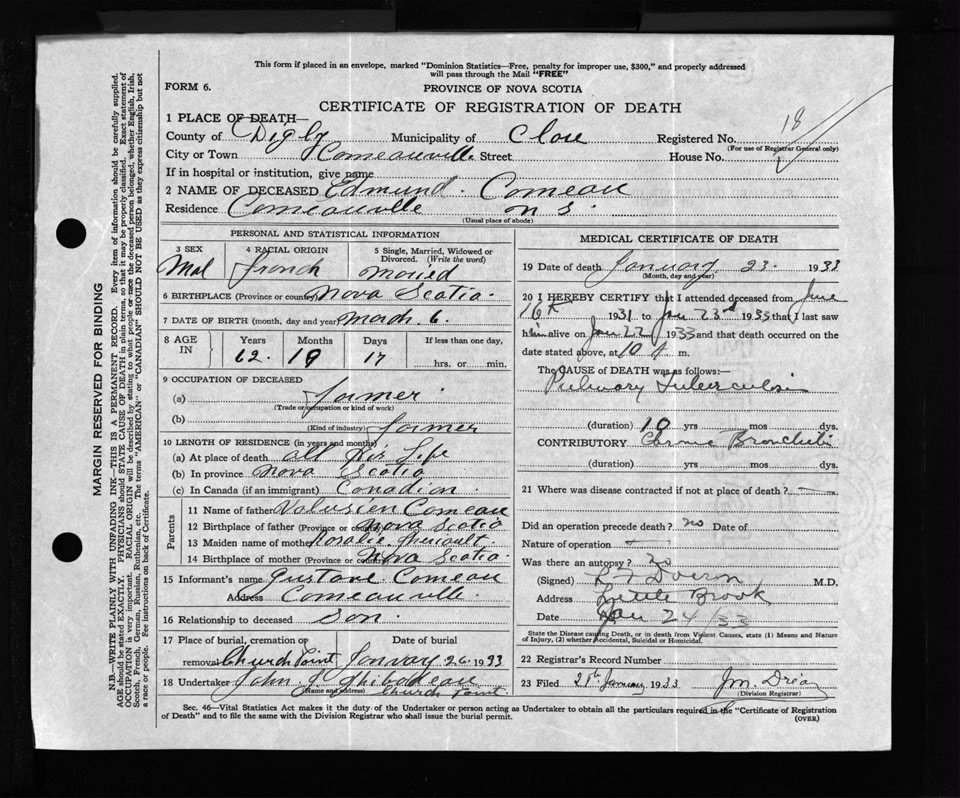 This form if placed in an envelope, marked "Dominion Statistics—Free, penalty for improper use, $300," and properly addressed
will pass through the Mail "FREE"
FORM 6.
PROVINCE OF NOVA SCOTIA
CERTIFICATE OF REGISTRATION OF DEATH
1 PLACE OF DEATH—
County of Digby Municipality of Clare Registered No. 18
(For use of Registrar General only)
City or Town Comeauville Street House No.
If in hospital or institution, give name
2 NAME OF DECEASED Edmund Comeau
Residence Comeauville N S.
(Usual place of abode)
PERSONAL AND STATISTICAL INFORMATION
3 SEX
Mal
4 RACIAL ORIGIN
french
5 Single, Married, Widowed or
Divorced. (Write the word)
maried
6 BIRTHPLACE (Province or country) Nova Scotia
7 DATE OF BIRTH (month, day and year) March 6.
8 AGE IN
Years Months Days If less than one day,
62. 17 hrs. or min.
9 OCCUPATION OF DECEASED
(a) farmer
(Trade or occupation or kind of work)
(b) farmer
(Kind of industry)
10 LENGTH OF RESIDENCE (in years and months)
(a) At place of death all His Life
(b) In province Nova Scotia
(c) In Canada (if an immigrant) Canadian
Parents
11 Name of father Valusien Comeau
12 Birthplace of father (Province or country) Nova Scotia
13 Maiden name of mother Rosalie Theriault
14 Birthplace of mother (Province or country) Nova Scotia
15 Informant's name Gustave Comeau
Address Comeauville
16 Relationship to deceased son
17 Place of burial, cremation or
removal Church Point
Date of burial
26 1933
18 Undertaker John J Thibodeau
(Name and address) Church Point
MEDICAL CERTIFICATE OF DEATH
19 Date of death January 23 1933
(Month, day and year)
20 I HEREBY CERTIFY that I attended deceased from June
16th 1931 to Jan 23rd 1933 that I last saw
him alive on Jan 22 1933 and that death occurred on the
date stated above, at 10 m.
The CAUSE of DEATH was as follows:—
Tuberculosis
(duration) 10 yrs mos dys.
CONTRIBUTORY
(duration) yrs mos dys.
21 Where was disease contracted if not at place of death?
Did an operation precede death? no Date of
Nature of operation
Was there an autopsy? no
(Signed) M.D.
Address Little Brook
Date Jan 24/33
State the Disease causing Death, or in death from Violent Causes, state (1) Means and Nature
of Injury, (2) whether Accidental, Suicidal or Homicidal.
22 Registrar's Record Number
23 Filed January 1933
(Division Registrar)
Sec. 46—Vital Statistics Act makes it the duty of the Undertaker or person acting as Undertaker to obtain all the particulars required in the "Certificate of Registration
of Death" and to file the same with the Division Registrar who shall issue the burial permit.
(OVER)
MARGIN RESERVED FOR BINDING
N.B.—WRITE PLAINLY WITH UNFADING INK—THIS IS A PERMANENT RECORD. Every item of information should be carefully supplied.
AGE should be stated EXACTLY. PHYSICIANS should STATE CAUSE OF DEATH in plain terms, so that it may be properly classified. Exact statement of
OCCUPATION is very important. RACIAL ORIGIN will be described by stating to what people or race the deceased person belonged, whether English, Irish,
Scotch, French, German, Russian, Ruthenian, etc. The terms "AMERICAN" or "CANADIAN" SHOULD NOT BE USED as they express citizenship but not
a race or people. See instructions on back of Certificate.